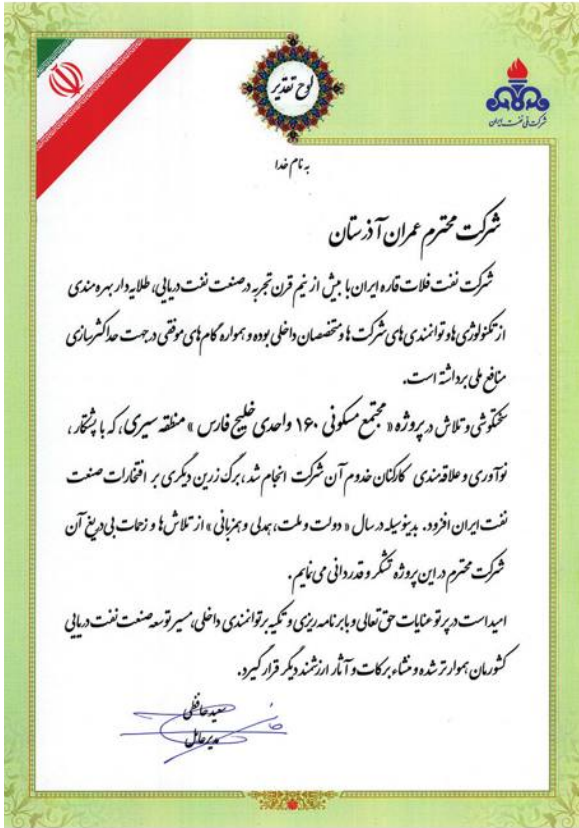 لوح تقدیر
شرکت ملی نفت ایران
به نام خدا
شرکت محترم عمران آذرستان
شرکت نفت فلات قاره ایران با بیش از نیم قرن تجربه در صنعت نفت دریایی، طلایه دار بهره مندی
از تکنولوژی ها و توانمندی های شرکت ها و متخصصان داخلی بوده و همواره گام های موفقی در جهت حداکثرسازی
منافع ملی برداشته است.
سختکوشی و تلاش در پروژه « مجتمع مسکونی ۱۶۰ واحدی خلیج فارس » منطقه سیری، که با پشتکار ،
نوآوری و علاقه مندی کارکنان خدوم آن شرکت انجام شد ، برگ زرین دیگری بر افتخارات صنعت
نفت ایران افزود. بدینوسیله در سال « دولت و ملت، همدلی و همزبانی » از تلاش ها و زحمات بی دریغ آن
شرکت محترم در این پروژه تشکر و قدردانی می نمایم.
امید است در پرتو عنایات حق تعالی و با برنامه ریزی و تکیه بر توانمندی داخلی، مسیر توسعه صنعت نفت دریایی
کشورمان هموارتر شده و منشاء برکات و آثار ارزشمند دیگر قرار گیرد.
سعید حافظی
مدیرعامل